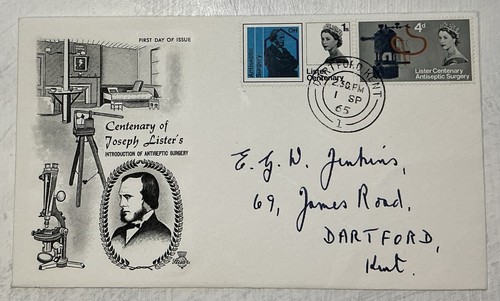 FIRST DAY OF ISSUE
Centenary of
Joseph Lister's
INTRODUCTION OF ANTISEPTIC SURGERY
1/-
Lister
Centenary
Antiseptic
Surgery
4d
Lister Centenary
Antiseptic Surgery
DARTFORD KENT
2.30 PM
1 SP
65
1
E. G. W. Jenkins,
69, James Road,
DARTFORD,
Kent.